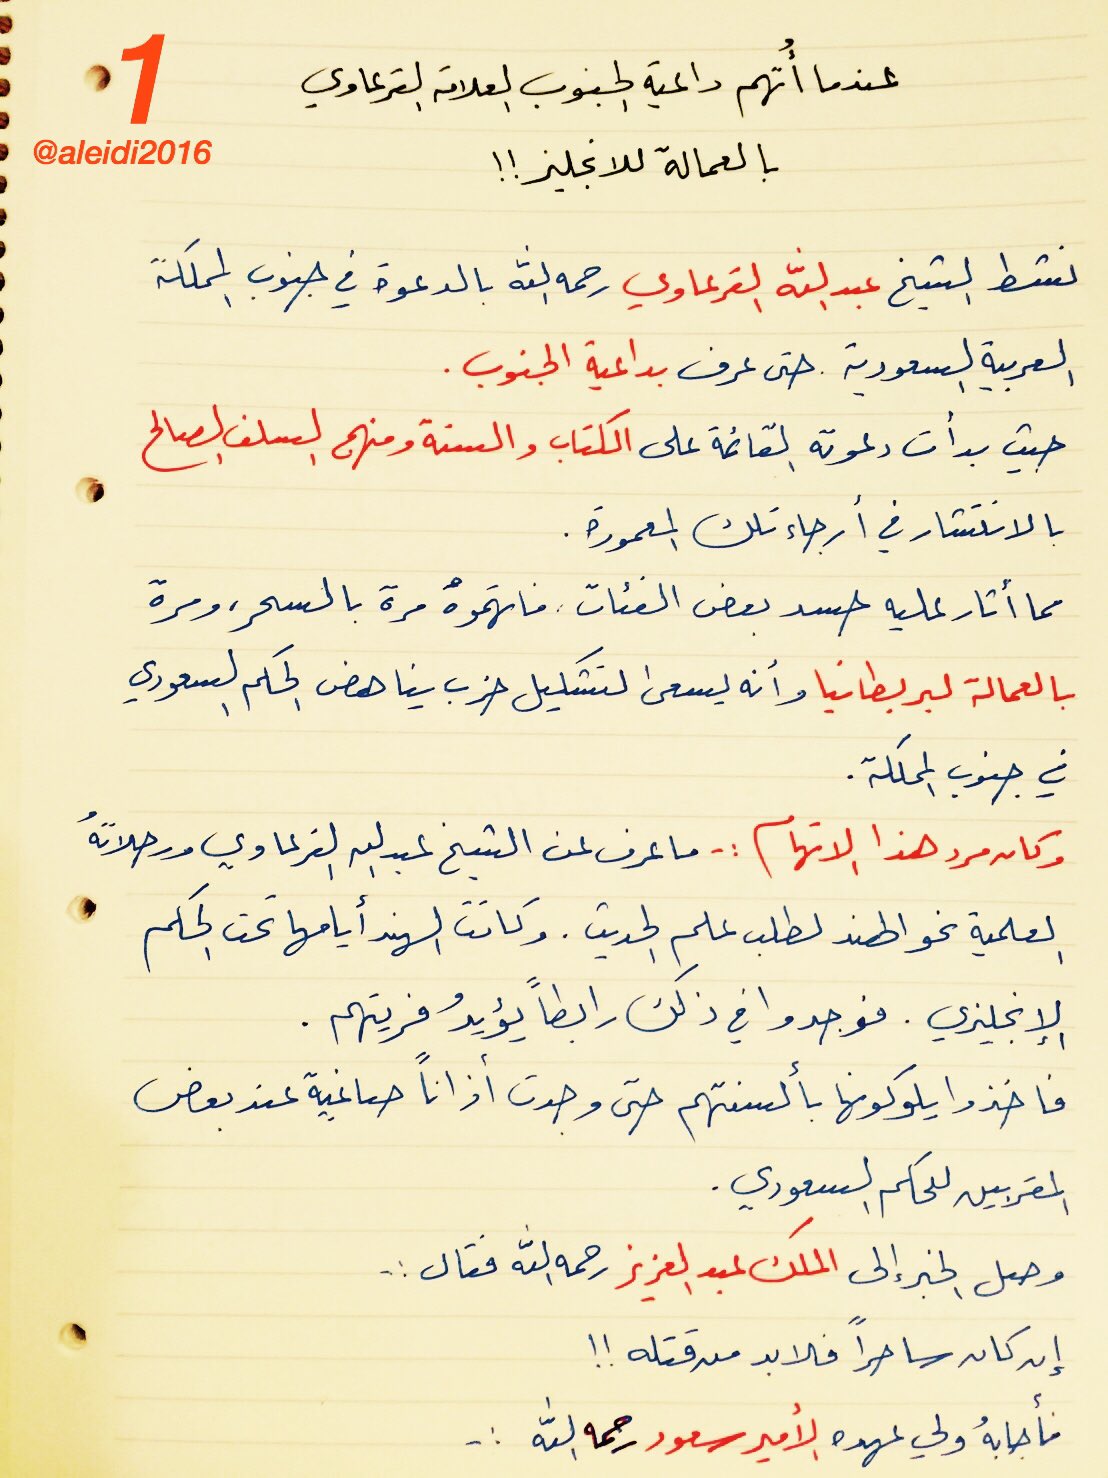 1
@aleidi2016
عندما أُتهم داعية الجنوب العلامة القرعاوي
بالعمالة للانجليز!!
نشط الشيخ عبدالله القرعاوي رحمه الله بالدعوة في جنوب المملكة
العربية السعودية. حتى عرف بداعية الجنوب.
حيث بدأت دعوته القائمة على الكتاب والسنة ومنهج السلف الصالح
بالانتشار في أرجاء تلك المعمورة.
مما أثار عليه حسد بعض الفئات، فاتهموهُ مرة بالسحر، ومرة
بالعمالة لبريطانيا وأنه يسعى لتشكيل حزب يناهض الحكم السعودي
في جنوب المملكة.
وكان مرد هذا الاتهام :- ما عرف عن الشيخ عبدالله القرعاوي ورحلاتهُ
العلمية نحو الهند لطلب علم الحديث. وكانت الهند أيامها تحت الحكم
الإنجليزي. فوجدوا في ذلك رابطاً يؤيدُ فريتهم.
فاخذوا يلوكونها بألسنتهم حتى وجدت أذاناً صاغية عند بعض
المقربين للحكم السعودي.
وصل الخبر إلى الملك عبدالعزيز رحمه الله فقال :-
إن كان ساحراً فلابد من قتله !!
فأجابهُ ولي عهده الأمير سعود رحمه الله :-